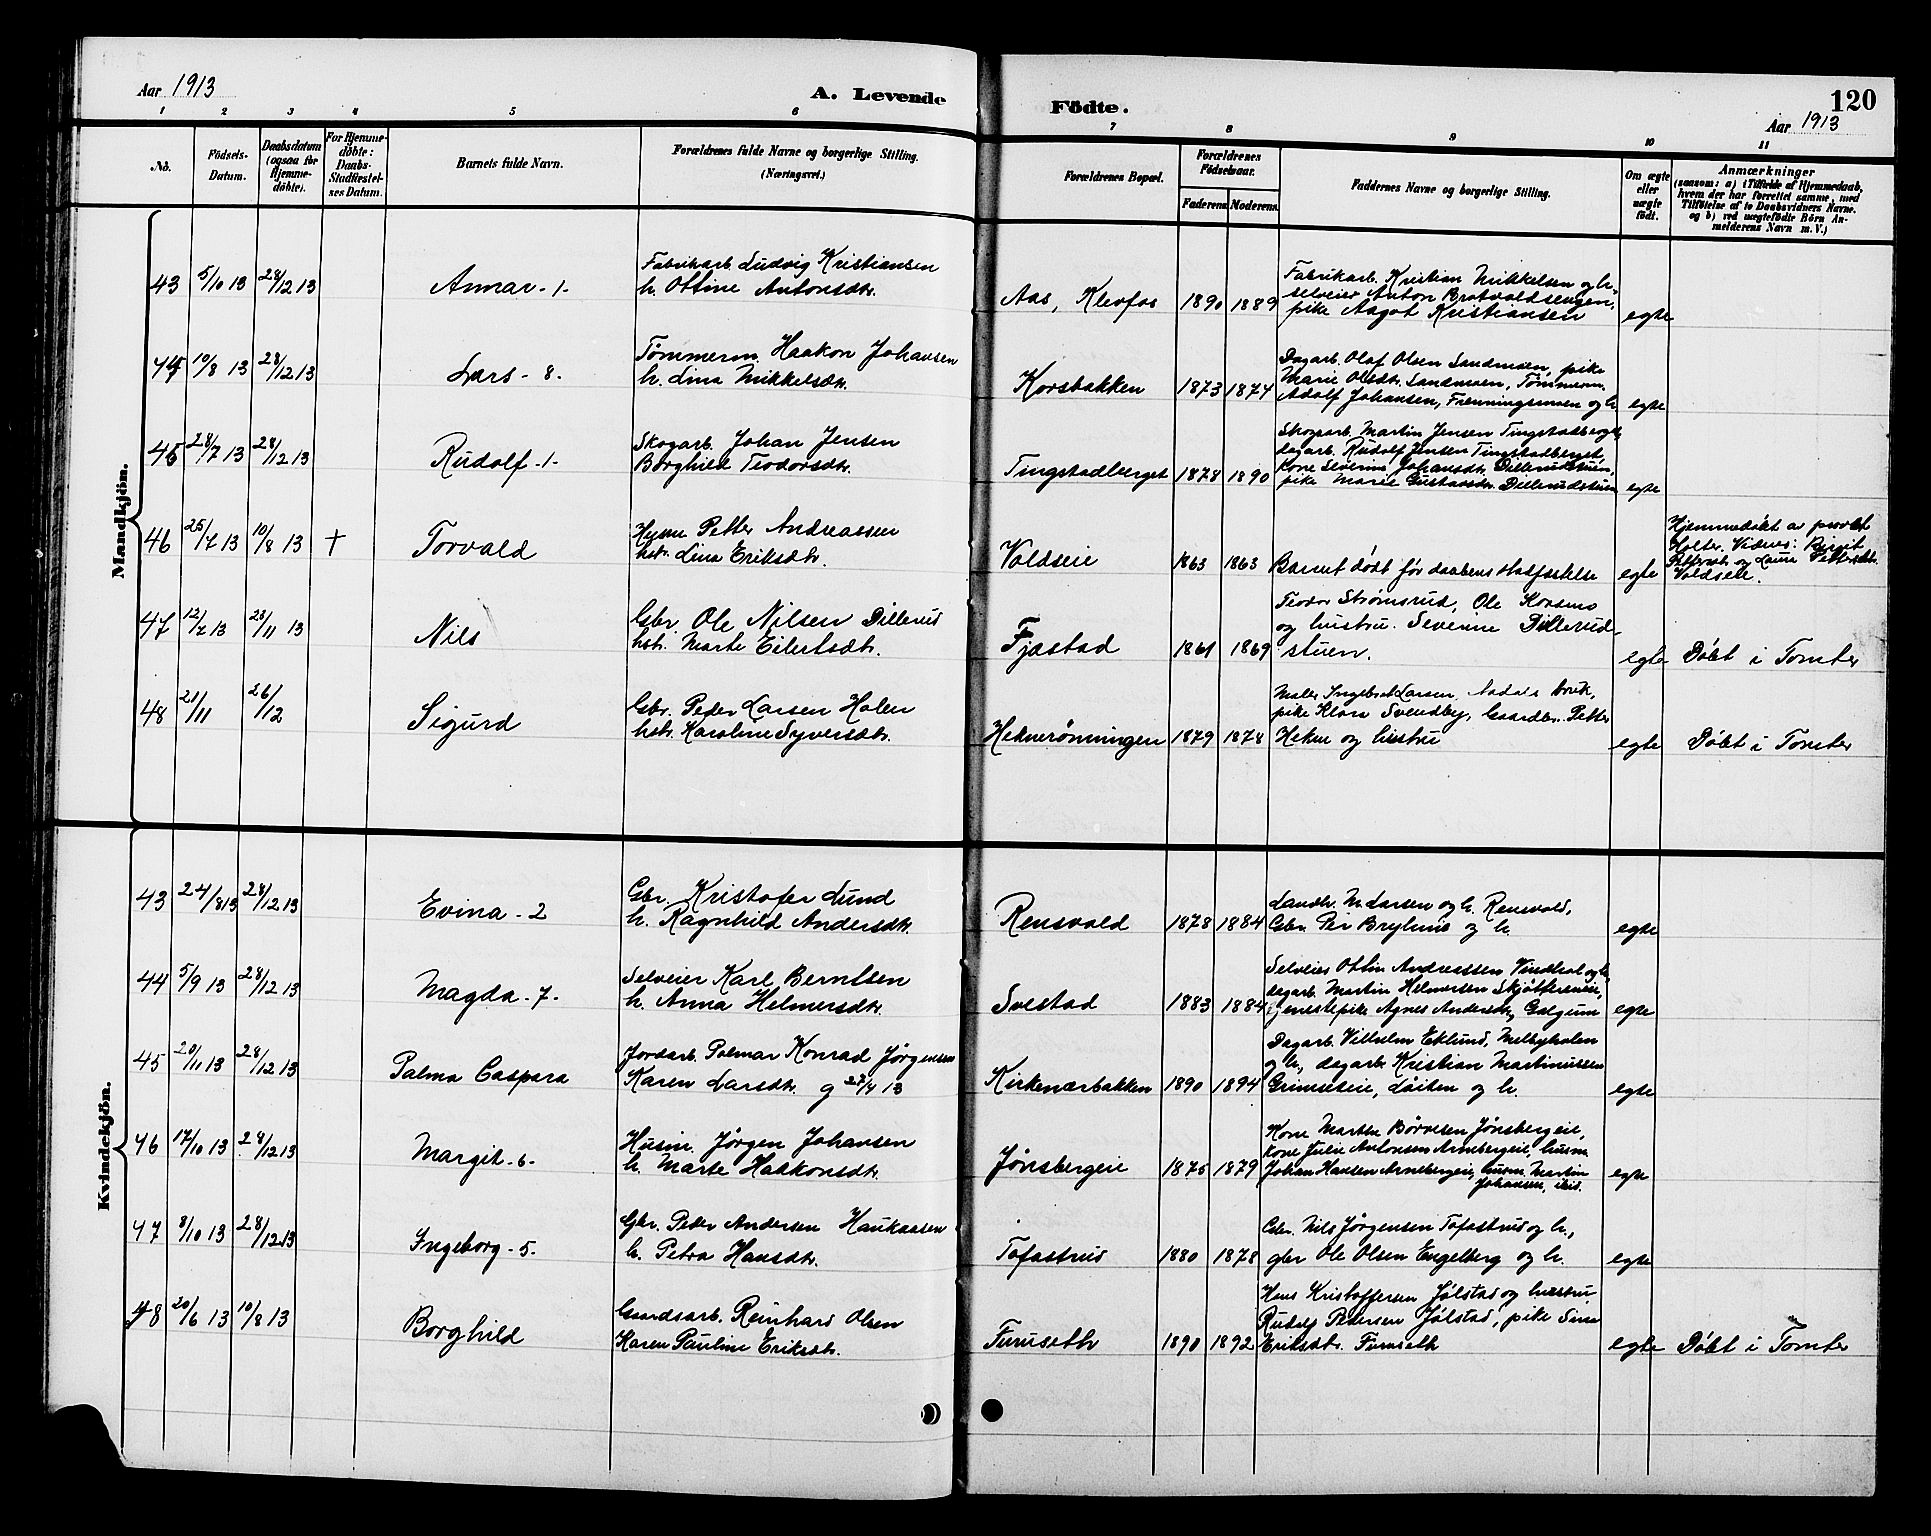 Aar 1913
A. Levende
Födte.
120
Aar 1913
1 2 3 4 5 6 7 8 9 10 11
No.
Födsels-
Datum.
Daabsdatum
(ogsaa for
Hjemme-
döbte).
For Hjemme-
döbte:
Daabs-
Stadfæstel-
ses Datum.
Barnets fulde Navn.
Forældrenes fulde Navne og borgerlige Stilling.
(Næringsvei.)
Forældrenes Bopæl.
Forældrenes
Födselsaar.
Faderens. Moderens.
Faddernes Navne og borgerlige Stilling.
Om ægte
eller
uægte
født.
Anmærkninger
(saasom: a) i Tilfælde af Hjemmedaab,
hvem der har forrettet samme, med
Tilföielse af to Daabsvidners Navne.
og b) ved uægtefödte Börn An-
melderens Navn m. V.)
Mandkjön.
43 5/10 13 28/12 13 Annar - 1 -
Fabrikarb. Ludvig Kristiansen
h. Ottine Antonsdtr.
Aas, Klevfos 1890 1889
Fabrikarb. Kristian Mikkelsen og h.
selveier Anton Bratvoldsengen,
pike Aagot Kristiansen
egte
44 10/8 13 28/12 13 Lars - 8 -
Tømmerm. Haakon Johansen
h. Lina Mikkelsdtr.
Korsbakken 1873 1874
Dagarb. Olaf Olsen Sandmoen, pike
Marie Olsdtr. Sandmoen, Tømmerm.
Adolf Johansen, Frenningsmoen og h.
egte
45 28/7 13 28/12 13 Rudolf - 1 -
Skogarb. Johan Jensen
Borghild Teodorsdtr.
Tingstadberget 1878 1890
Skogarb. Martin Jensen Tingstadberget,
dagarb. Rudolf Jensen Tingstadberget,
kone Severine Johansdtr. Dillerudstuen,
pike Marie Gustavsdtr. Dillerudstuen
egte
46 25/7 13 10/8 13 † Torvald
Husm. Petter Andreassen
hst. Lina Eriksdtr.
Voldseie 1863 1863
Barnet dødt før daabens stadfæstelse
egte
Hjemmedøbt av provst
Holter. Vidner: Birgit
Pettersdtr. og Laura Pettersdtr.
Voldseie.
47 12/7 13 23/11 13 Nils
Gbr Ole Nilsen Dillerud
hst. Marte Eilertsdtr.
Fjæstad 1861 1869
Teodor Strømsrud, Ole Korsmo
og hustru. Severine Dillerud-
stuen.
egte Døbt i Tomter
48 21/11 26/12 Sigurd
Gbr. Peder Larsen Holen
hst. Karoline Syversdtr.
Heknerønningen 1879 1878
Maler Ingebret Larsen, Aadals bruk,
pike Klara Svendby, Gaardbr. Petter
Hekne og hustru
egte Døbt i Tomter
Kvindekjön.
43 24/8 13 28/12 13 Evina - 2
Gbr. Kristofer Lund
h. Ragnhild Andersdtr.
Rensvold 1878 1884
Landh. M. Larsen og h. Rensvold,
Gbr. Per Bryhni og h.
egte
44 5/9 13 28/12 13 Magda - 7 -
Selveier Karl Berntsen
h. Anna Helmersdtr.
Svestad 1883 1884
Selveier Ottin Andreassen Vindhol og h.,
dagarb. Martin Helmersen Skjøttereneie,
tjenestepike Agnes Andersdtr. Galgum
egte
45 20/11 13 28/12 13 Palma Caspara
Jordarb. Palmar Konrad Jørgensen
Karen Larsdtr. g 27/4 13
Kirkenærbakken 1890 1894
Dagarb. Vilhelm Eklund, Melbyholen
og h., dagarb. Kristian Martinussen
Grimseteie, Løiten og h.
egte
46 17/10 13 28/12 13 Margit - 6 -
Husm. Jørgen Johansen
h. Marte Haakonsdtr.
Jønsbergeie 1875 1879
Kone Marthe Børresen Jønsbergeie,
kone Julie Antonsen Arnebergeie, husm.
Johan Hansen Arnebergeie, husm. Martin
Johansen, ibid.
egte
47 8/10 13 28/12 13 Ingeborg - 5 -
Gbr. Peder Andersen Haukaasen
h. Petra Hansdtr.
Tofastrud 1880 1878
Gbr. Nils Jørgensen Tofastrud og h.,
gbr Ole Olsen Engelberg og h.
egte
48 20/6 13 10/8 13 Borghild
Gaardsarb. Reinhard Olsen
Karen Pauline Eriksdtr.
Furuseth 1890 1892
Hans Kristoffersen Jølstad og hustru
Rudolf Pedersen Jølstad, pike Sina
Eriksdtr. Furuseth
egte Døbt i Tomter